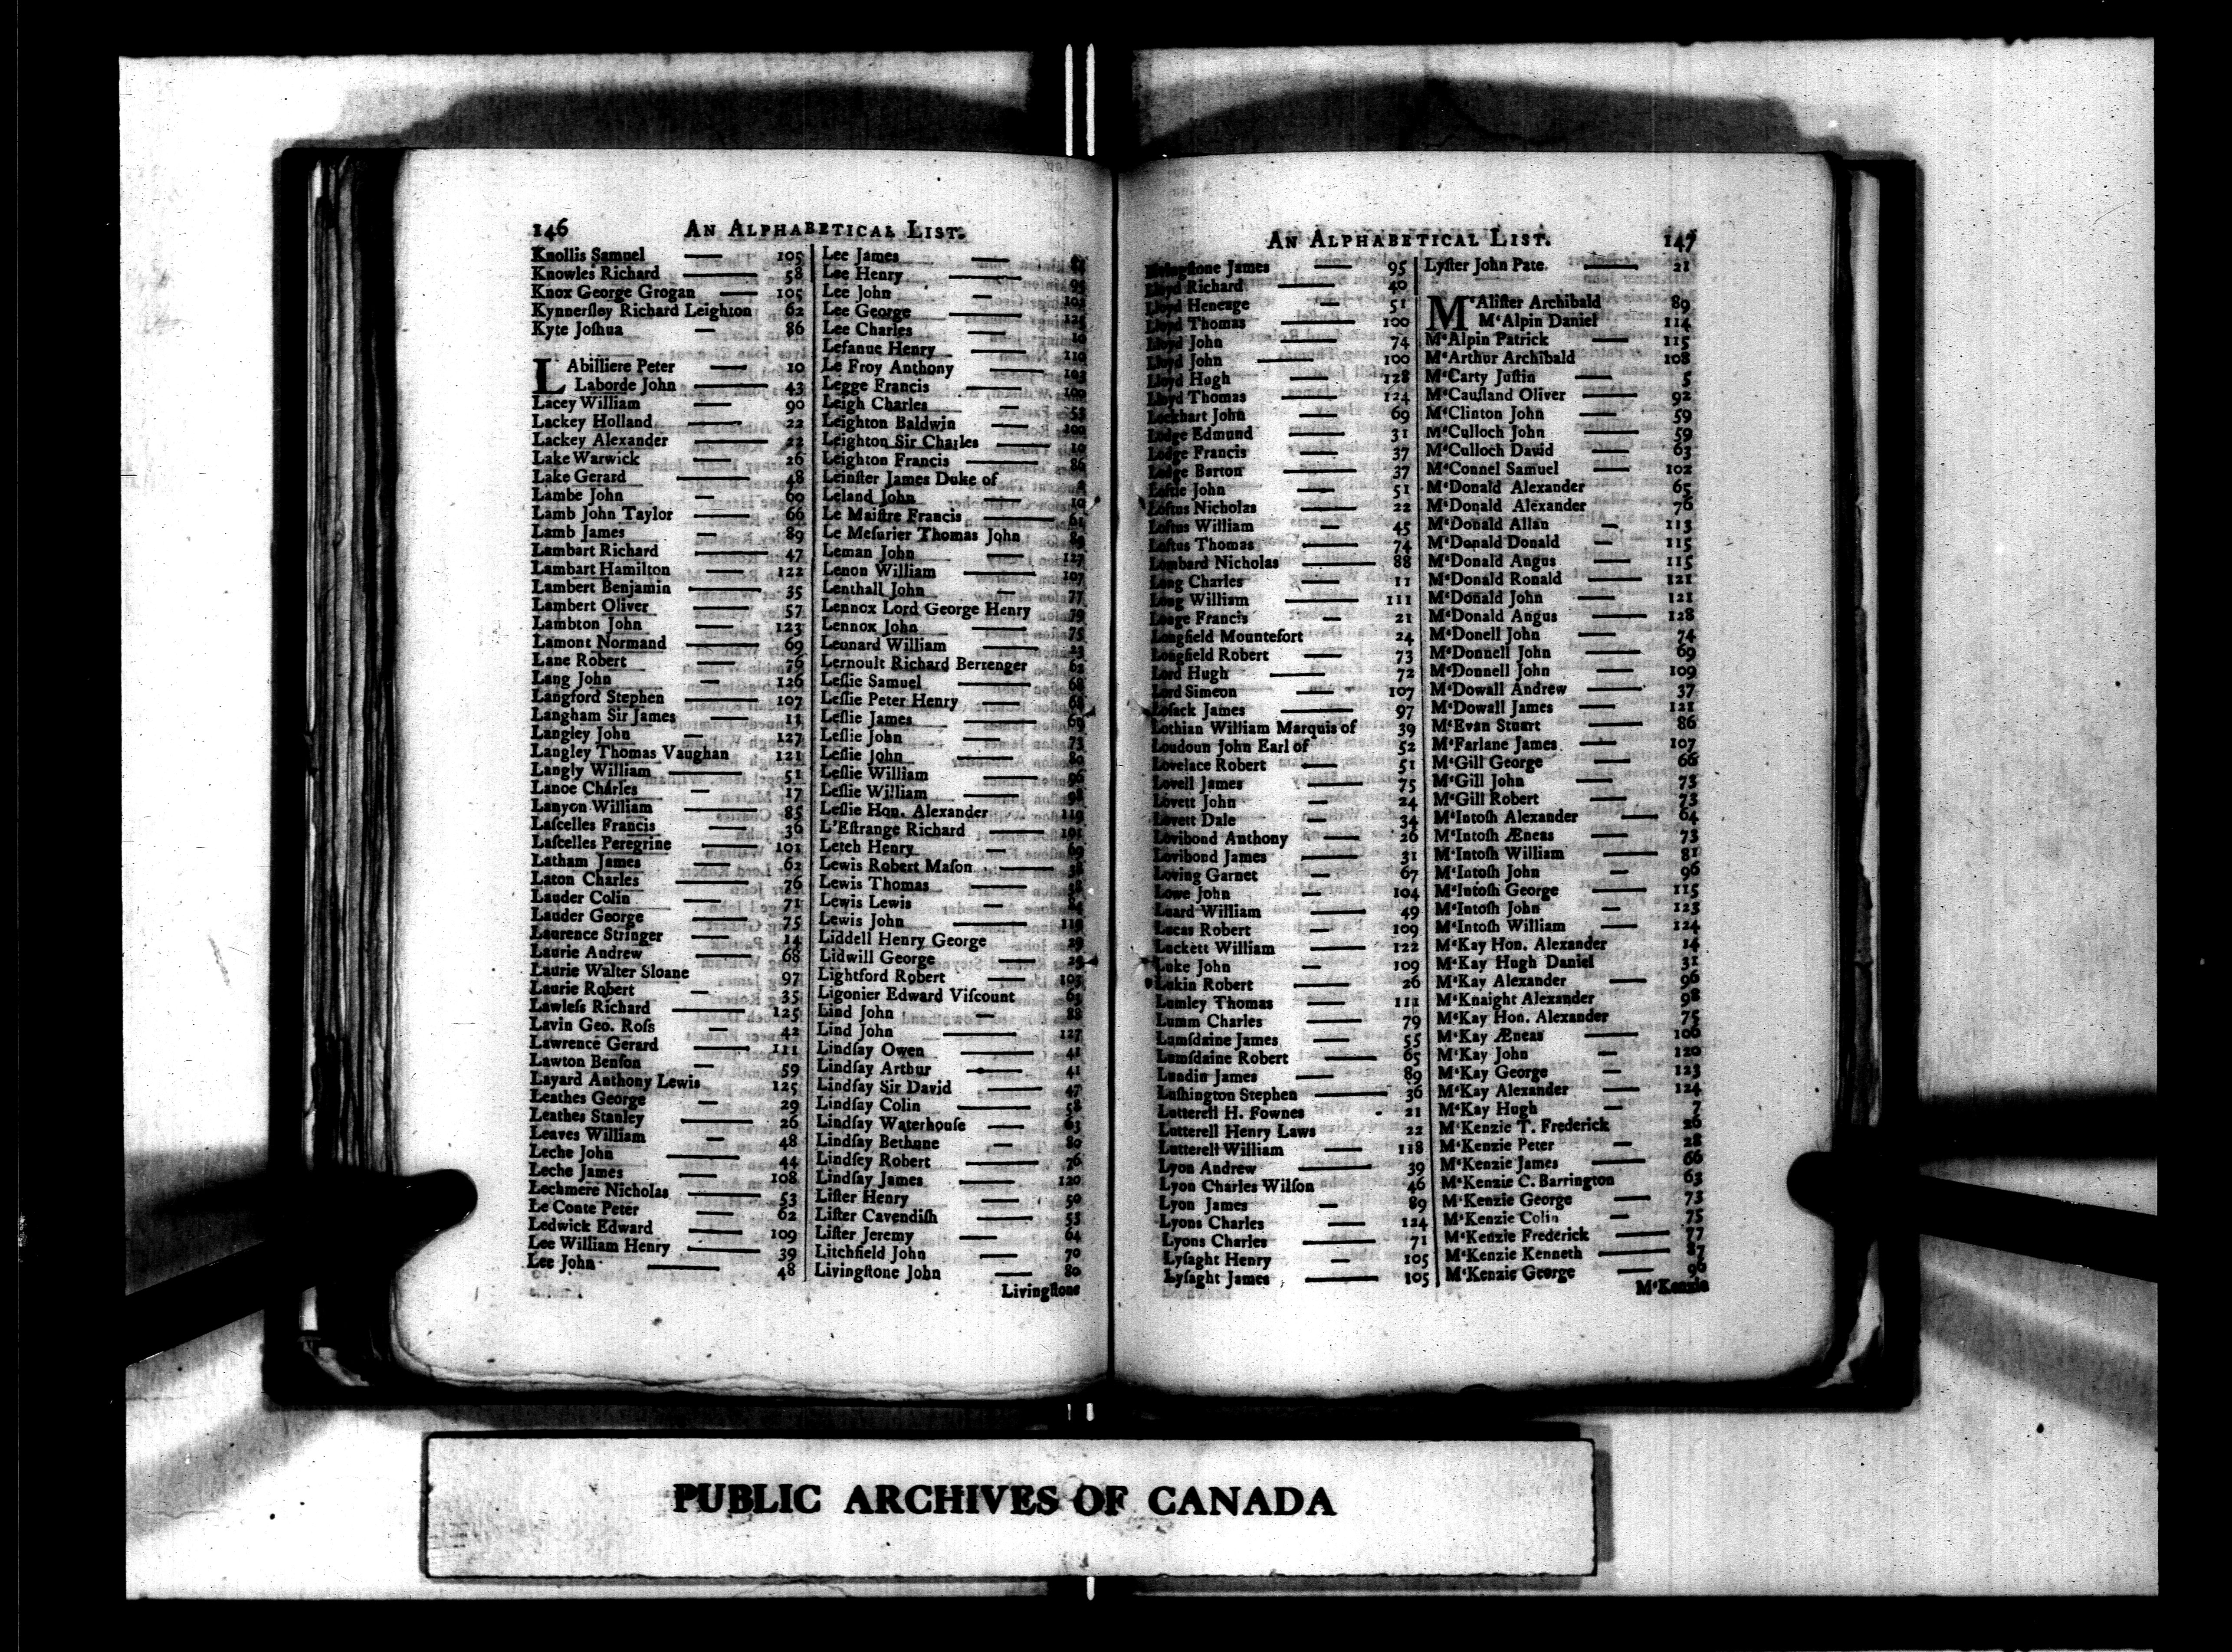 146 AN ALPHABETICAL LIST.
Knollis Samuel — 105
Knowles Richard — 58
Knox George Grogan — 105
Kynnerſley Richard Leighton 62
Kyte Joſhua — 86
L'Abilliere Peter — 10
Laborde John — 43
Lacey William — 90
Lackey Holland — 22
Lackey Alexander — 22
Lake Warwick — 26
Lake Gerard — 48
Lambe John — 60
Lamb John Taylor — 66
Lamb James — 89
Lambart Richard — 47
Lambart Hamilton — 122
Lambert Benjamin — 35
Lambert Oliver — 57
Lambton John — 123
Lamont Normand — 69
Lane Robert — 76
Lang John — 126
Langford Stephen — 107
Langham Sir James — 11
Langley John — 127
Langley Thomas Vaughan 121
Langly William — 51
Lanoe Charles — 17
Lanyon William — 85
Laſcelles Francis — 36
Laſcelles Peregrine — 101
Latham James — 62
Laton Charles — 76
Lauder Colin — 71
Lauder George — 75
Laurence Stringer — 14
Laurie Andrew — 68
Laurie Walter Sloane 97
Laurie Robert — 35
Lawleſs Richard — 125
Lavin Geo. Roſs — 42
Lawrence Gerard — 111
Lawton Benſon — 59
Layard Anthony Lewis 125
Leathes George — 29
Leathes Stanley — 26
Leaves William — 48
Leche John — 44
Leche James — 108
Lechmere Nicholas — 53
Le Conte Peter — 62
Ledwick Edward — 109
Lee William Henry — 39
Lee John — 48
Lee James —
Lee Henry —
Lee John —
Lee George —
Lee Charles —
Lefanue Henry —
Le Froy Anthony — 110
Legge Francis —
Leigh Charles —
Leighton Baldwin —
Leighton Sir Charles —
Leighton Francis —
Leinſter James Duke of
Leland John — 10
Le Maiſtre Francis — 61
Le Meſurier Thomas John
Leman John — 127
Lenon William — 107
Lenthall John — 77
Lennox Lord George Henry 79
Lennox John — 75
Leonard William —
Lernoult Richard Berrenger
Leſlie Samuel — 68
Leſlie Peter Henry — 68
Leſlie James — 69
Leſlie John — 73
Leſlie John — 80
Leſlie William — 96
Leſlie William —
Leſlie Hon. Alexander 119
L'Eſtrange Richard — 101
Letch Henry — 69
Lewis Robert Maſon —
Lewis Thomas —
Lewis Lewis —
Lewis John — 119
Liddell Henry George 29
Lidwill George —
Lightford Robert —
Ligonier Edward Viſcount
Lind John — 88
Lind John — 127
Lindſay Owen — 41
Lindſay Arthur — 41
Lindſay Sir David — 47
Lindſay Colin — 58
Lindſay Waterhouſe — 63
Lindſay Bethune — 80
Lindſey Robert — 76
Lindſay James — 120
Liſter Henry — 50
Liſter Cavendiſh — 55
Liſter Jeremy — 64
Litchfield John — 70
Livingſtone John — 80
Livingſtone
AN ALPHABETICAL LIST. 147
Livingſtone James — 95
Lloyd Richard — 40
Lloyd Heneage — 51
Lloyd Thomas — 100
Lloyd John — 74
Lloyd John — 100
Lloyd Hugh — 128
Lloyd Thomas — 124
Lockhart John — 69
Lodge Edmund — 31
Lodge Francis — 37
Lodge Barton — 37
Loftie John — 51
Loftus Nicholas — 22
Loftus William — 45
Loftus Thomas — 74
Lombard Nicholas — 88
Long Charles — 11
Long William — 111
Longe Francis — 21
Longfield Mounteſort 24
Longfield Robert — 73
Lord Hugh — 72
Lord Simeon — 107
Loſack James — 97
Lothian William Marquis of 39
Loudoun John Earl of 52
Lovelace Robert — 51
Lovell James — 75
Lovett John — 24
Lovett Dale — 34
Lovibond Anthony — 26
Lovibond James — 31
Loving Garnet — 67
Lowe John — 104
Luard William — 49
Lucas Robert — 109
Luckett William — 122
Luke John — 109
Lukin Robert — 26
Lumley Thomas — 111
Lumm Charles — 79
Lumſdaine James — 55
Lumſdaine Robert — 65
Lundin James — 89
Luſhington Stephen — 36
Lutterell H. Fownes - 21
Lutterell Henry Laws 22
Lutterell William — 118
Lyon Andrew — 39
Lyon Charles Wilſon 46
Lyon James — 89
Lyons Charles — 124
Lyons Charles — 71
Lyſaght Henry — 105
Lyſaght James — 105
Lyſter John Pate — 21
M'Aliſter Archibald 89
M'Alpin Daniel 114
M'Alpin Patrick — 115
M'Arthur Archibald 108
M'Carty Juſtin — 5
M'Cauſland Oliver — 92
M'Clinton John — 59
M'Culloch John — 59
M'Culloch David — 63
M'Connel Samuel — 102
M'Donald Alexander 65
M'Donald Alexander 76
M'Donald Allan — 113
M'Donald Donald — 115
M'Donald Angus — 115
M'Donald Ronald — 121
M'Donald John — 121
M'Donald Angus — 128
M'Donell John — 74
M'Donnell John — 69
M'Donnell John — 109
M'Dowall Andrew — 37
M'Dowall James — 121
M'Evan Stuart — 86
M'Farlane James — 107
M'Gill George — 66
M'Gill John — 73
M'Gill Robert — 73
M'Intoſh Alexander — 64
M'Intoſh Æneas — 73
M'Intoſh William — 81
M'Intoſh John — 96
M'Intoſh George — 115
M'Intoſh John — 123
M'Intoſh William — 124
M'Kay Hon. Alexander 14
M'Kay Hugh Daniel 31
M'Kay Alexander — 96
M'Knaight Alexander 98
M'Kay Hon. Alexander 75
M'Kay Æneas — 106
M'Kay John — 120
M'Kay George — 123
M'Kay Alexander — 124
M'Kay Hugh — 7
M'Kenzie T. Frederick 26
M'Kenzie Peter — 28
M'Kenzie James — 66
M'Kenzie C. Barrington 63
M'Kenzie George — 73
M'Kenzie Colin — 75
M'Kenzie Frederick — 77
M'Kenzie Kenneth — 87
M'Kenzie George — 96
M'Kenzie
PUBLIC ARCHIVES OF CANADA